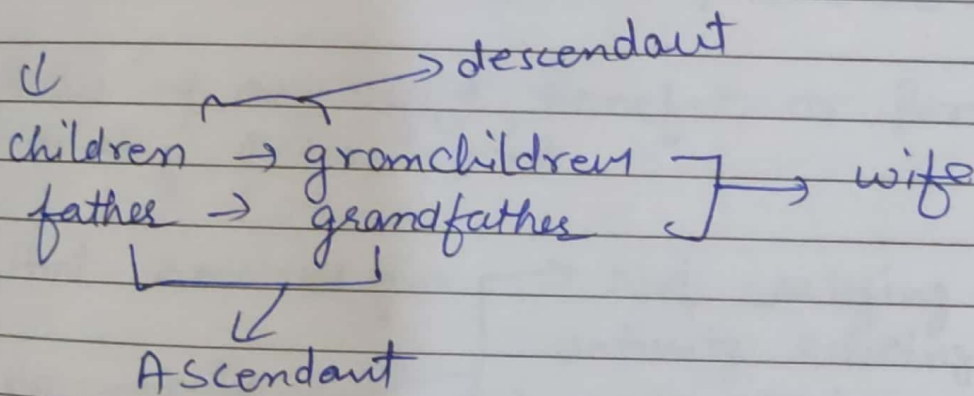 descendant
children → gromchildren → wife
father → grandfather
Ascendant